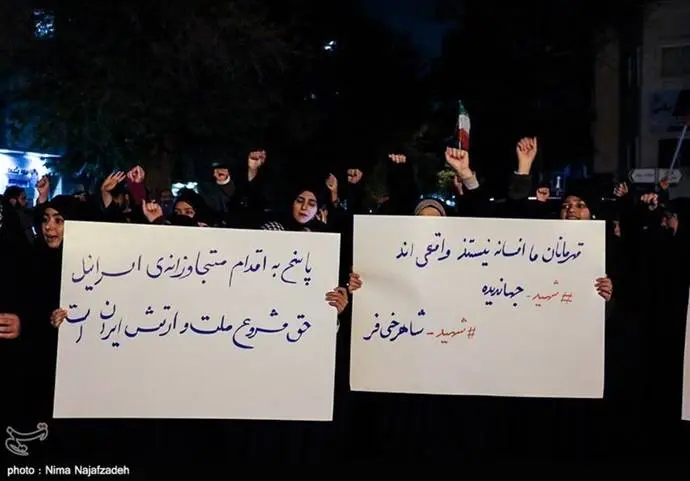 پاسخ به اقدام متجاوزانه‌ی اسرائیل
حق مشروع ملت و ارتش ایران است
قهرمانان ما افسانه نیستند واقعی اند
#شهید_جهاندیده
#شهید_شاهرخی فر
photo : Nima Najafzadeh